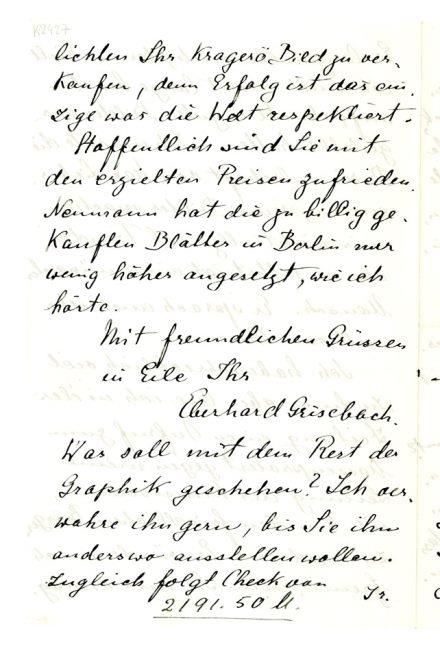 K2427
lichten Ihr Kragerö Bild zu ver-
kaufen, denn Erfolg ist das ein-
zige was die Welt respektiert.
Hoffentlich sind Sie mit
den erzielten Preisen zufrieden.
Neumann hat die zu billig ge-
kauften Blätter in Berlin nur
wenig höher angesetzt, wie ich
hörte.
Mit freundlichen Grüssen
in Eile Ihr
Eberhard Grisebach.
Was soll mit dem Rest der
Graphik geschehen? Ich ver-
wahre ihn gern, bis Sie ihn
anderswo ausstellen wollen.
Zugleich folgt Check von
2191.50 M.